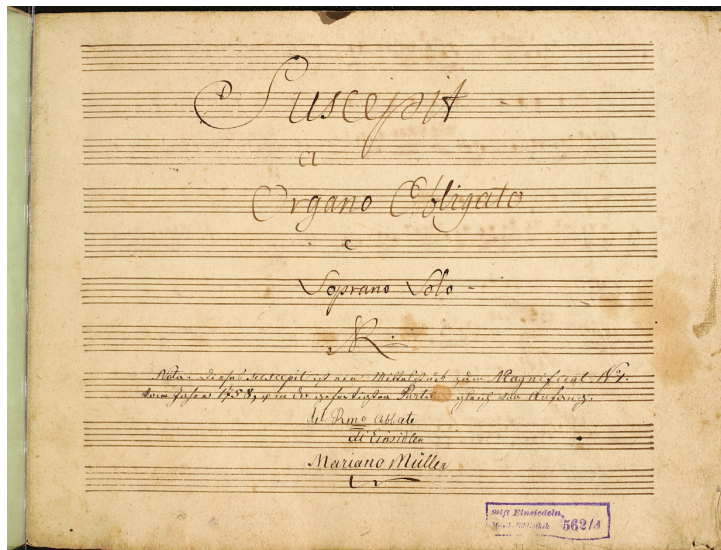 Suscepit
a
Organo Obligato
e
Soprano Solo
Nota. Dieses Suscepit ist ein Mittelstück zum Magnificat N°1.
vom Jahre 1758, in der Partitur gleich am Anfang.
del Rmo Abbate
di Einsidlen
Mariano Müller
Stift Einsiedeln,
Musik-Bibliothek 562/1